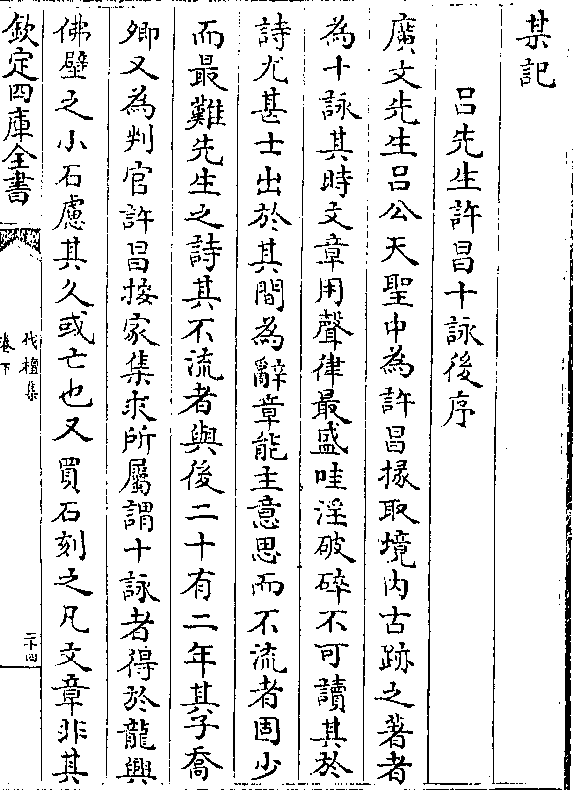 某記
吕先生許昌十詠後序
廣文先生吕公天聖中為許昌掾取境内古跡之著者
為十詠其時文章用聲律最盛哇淫破碎不可讀其於
詩尤甚士出於其間為辭章能主意思而不流者固少
而最難先生之詩其不流者與後二十有二年其子喬
卿又為判官許昌按家集求所屬謂十詠者得於龍興
佛壁之小石慮其久或亡也又買石刻之凡文章非其
欽定四庫全書
伐檀集
卷下
二十四